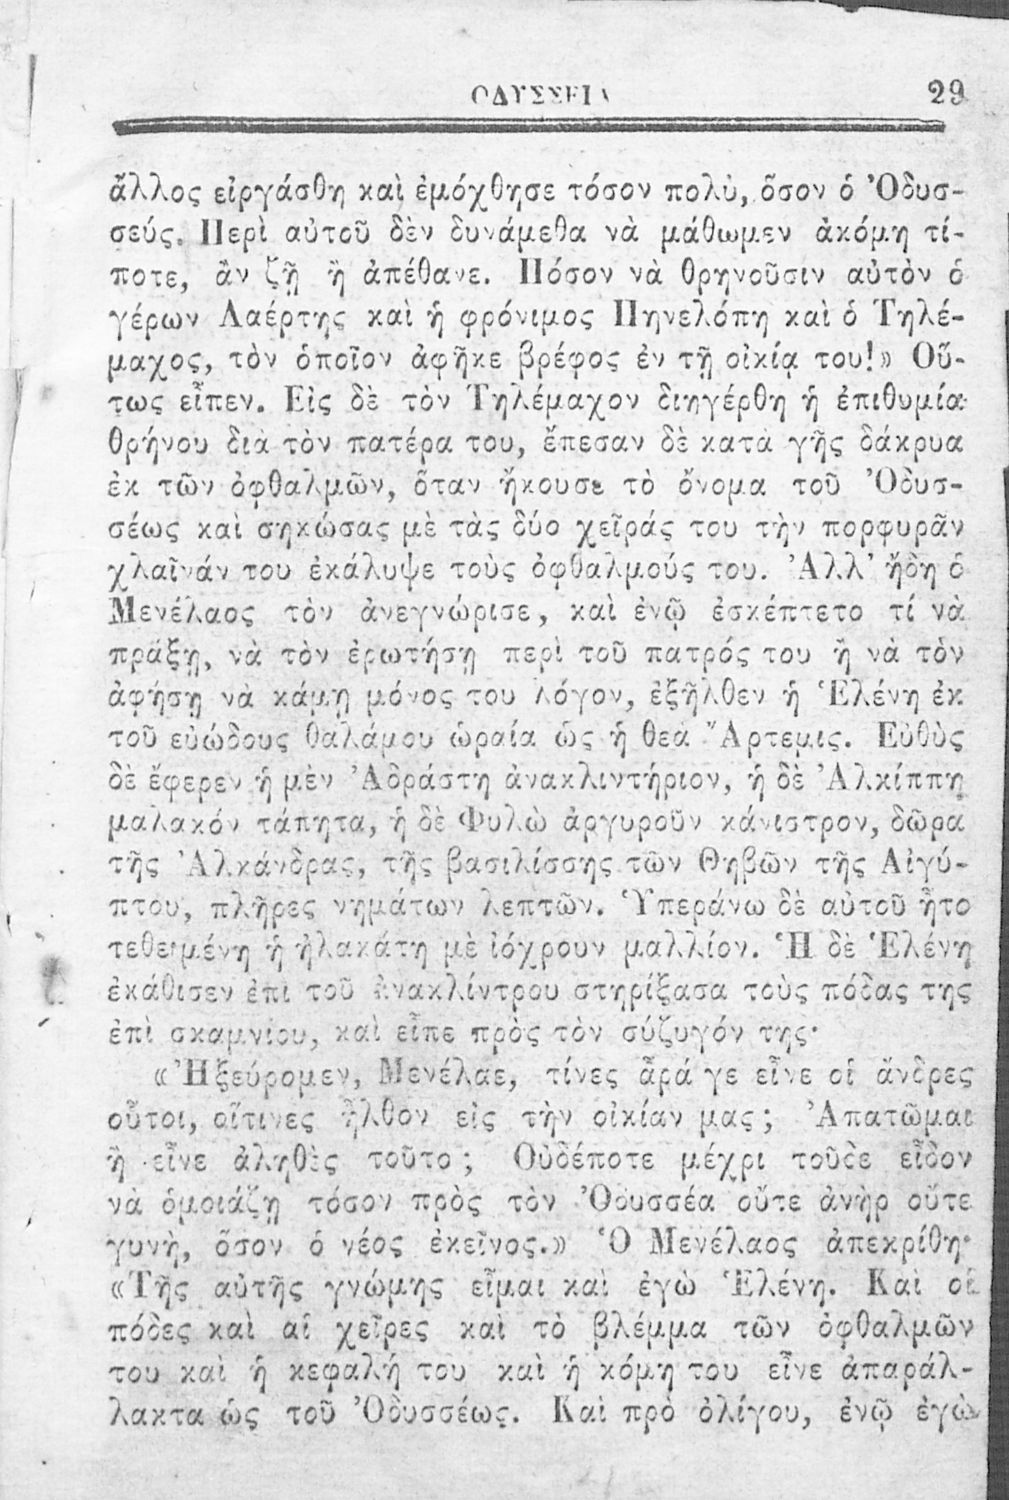 ΟΔΥΣΣΕΙΑ 29
ἄλλος εἰργάσθη καὶ ἐμόχθησε τόσον πολὺ, ὅσον ὁ Ὀδυσ-
σεύς. Περὶ αὐτοῦ δὲν δυνάμεθα νὰ μάθωμεν ἀκόμη τί-
ποτε, ἂν ζῇ ἢ ἀπέθανε. Πόσον νὰ θρηνοῦσιν αὐτὸν ὁ
γέρων Λαέρτης καὶ ἡ φρόνιμος Πηνελόπη καὶ ὁ Τηλέ-
μαχος, τὸν ὁποῖον ἀφῆκε βρέφος ἐν τῇ οἰκίᾳ του!» Οὕ-
τως εἶπεν. Εἰς δὲ τὸν Τηλέμαχον διηγέρθη ἡ ἐπιθυμία
θρήνου διὰ τὸν πατέρα του, ἔπεσαν δὲ κατὰ γῆς δάκρυα
ἐκ τῶν ὀφθαλμῶν, ὅταν ἤκουσε τὸ ὄνομα τοῦ Ὀδυσ-
σέως καὶ σηκώσας μὲ τὰς δύο χεῖράς του τὴν πορφυρᾶν
χλαῖνάν του ἐκάλυψε τοὺς ὀφθαλμούς του. Ἀλλ' ἤδη ὁ
Μενέλαος τὸν ἀνεγνώρισε, καὶ ἐνῷ ἐσκέπτετο τί νὰ
πράξῃ, νὰ τὸν ἐρωτήσῃ περὶ τοῦ πατρός του ἢ νὰ τὸν
ἀφήσῃ νὰ κάμῃ μόνος του λόγον, ἐξῆλθεν ἡ Ἑλένη ἐκ
τοῦ εὐώδους θαλάμου ὡραία ὡς ἡ θεὰ Ἄρτεμις. Εὐθὺς
δὲ ἔφερεν ἡ μὲν Ἀδράστη ἀνακλιντήριον, ἡ δὲ Ἀλκίππη
μαλακόν τάπητα, ἡ δὲ Φυλὼ ἀργυροῦν κάνιστρον, δῶρα
τῆς Ἀλκάνδρας, τῆς βασιλίσσης τῶν Θηβῶν τῆς Αἰγύ-
πτου, πλῆρες νημάτων λεπτῶν. Ὑπεράνω δὲ αὐτοῦ ἦτο
τεθειμένη ἡ ἠλακάτη μὲ ἰόχρουν μαλλίον. Ἡ δὲ Ἑλένη
ἐκάθισεν ἐπὶ τοῦ ἀνακλίντρου στηρίξασα τοὺς πόδας της
ἐπὶ σκαμνίου, καὶ εἶπε πρὸς τὸν σύζυγόν της·
«Ἠξεύρομεν, Μενέλαε, τίνες ἆρά γε εἶνε οἱ ἄνδρες
οὗτοι, οἵτινες ἦλθον εἰς τὴν οἰκίαν μας; Ἀπατῶμαι
ἢ εἶνε ἀληθὲς τοῦτο; Οὐδέποτε μέχρι τοῦδε εἶδον
νὰ ὁμοιάζῃ τόσον πρὸς τὸν Ὀδυσσέα οὔτε ἀνὴρ οὔτε
γυνὴ, ὅσον ὁ νέος ἐκεῖνος.» Ὁ Μενέλαος ἀπεκρίθη·
«Τῆς αὐτῆς γνώμης εἶμαι καὶ ἐγὼ Ἑλένη. Καὶ οἱ
πόδες καὶ αἱ χεῖρες καὶ τὸ βλέμμα τῶν ὀφθαλμῶν
του καὶ ἡ κεφαλή του καὶ ἡ κόμη του εἶνε ἀπαράλ-
λακτα ὡς τοῦ Ὀδυσσέως. Καὶ πρὸ ὀλίγου, ἐνῷ ἐγὼ